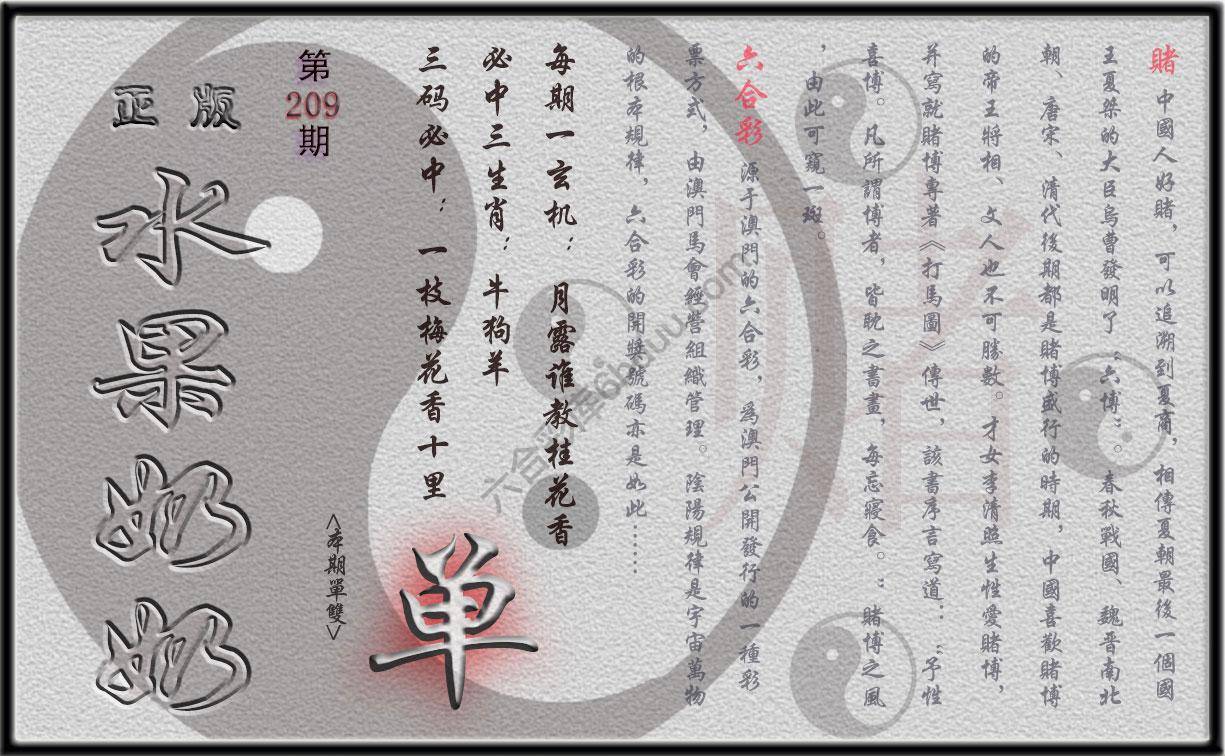 賭 中國人好賭，可以追溯到夏商，相傳夏朝最後一個國
王夏桀的大臣烏曹發明了“六博”。春秋戰國、魏晋南北
朝、唐宋、清代後期都是賭博盛行的時期，中國喜歡賭博
的帝王將相、文人也不可勝數。才女李清照生性愛賭博，
并寫就賭博專著《打馬圖》傳世，該書序言寫道：“予性
喜博。凡所謂博者，皆耽之書畫，每忘寢食。”賭博之風
，由此可窺一斑。
六合彩 源于澳門的六合彩，爲澳門公開發行的一種彩
票方式，由澳門馬會經營組織管理。陰陽規律是宇宙萬物
的根本規律，六合彩的開獎號碼亦是如此……
每期一玄机：月露谁教桂花香
必中三生肖：牛狗羊
三码必中：一枝梅花香十里
单
<本期單雙>
第209期
正版
水果奶奶
六合彩库6hduu.com